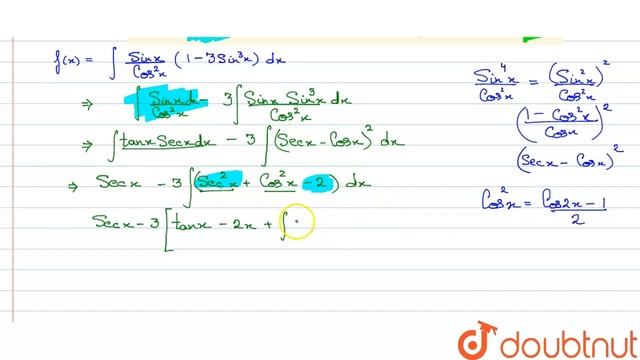 f(x) = ∫ Sinx/Cos²x (1 - 3Sin³x) dx
⇒ ∫ Sinxdx/Cos²x - 3∫ Sinx Sin³x dx/Cos²x
⇒ ∫tanx Secxdx - 3∫(Secx - Cosx)² dx
⇒ Secx - 3∫(Sec²x + Cos²x - 2) dx
Secx - 3[tanx - 2x + ∫
Sin⁴x/Cos²x = (Sin²x)²/Cos²x
((1 - Cos²x)/Cosx)²
(Secx - Cosx)²
Cos²x = (Cos2x - 1)/2
doubtnut